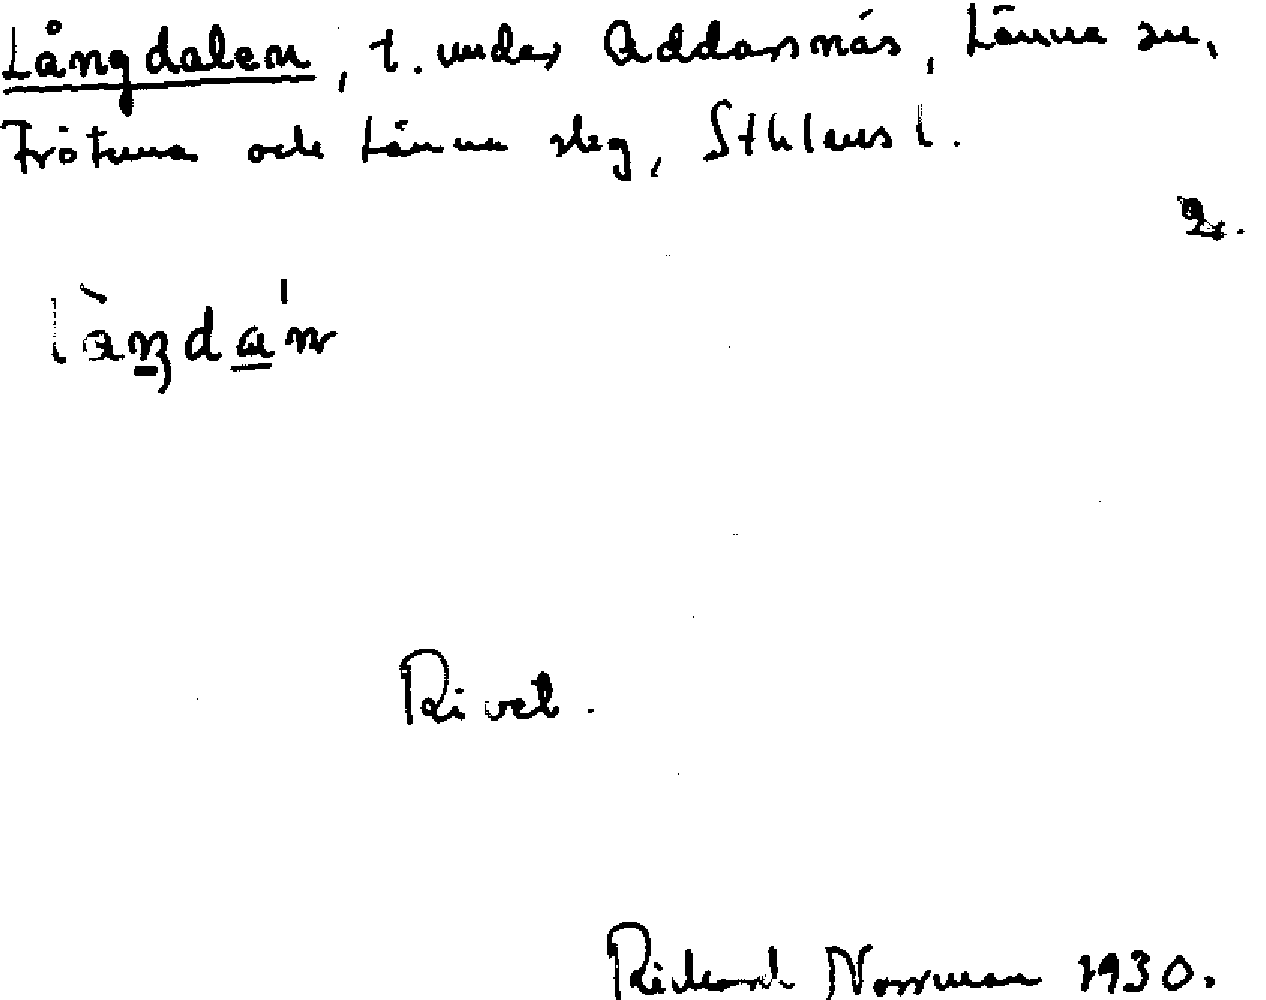 Långdalen, t. under Addarsnäs, Länna sn,
Frötuna och Länna slg, Sthlms l.
2.
Rivet.
Rickard Norrman 1930.